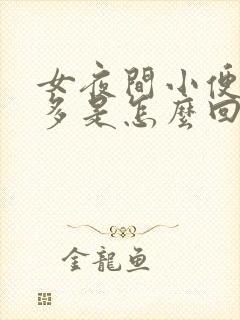 女夜間小便
多是怎麼回
金龍魚